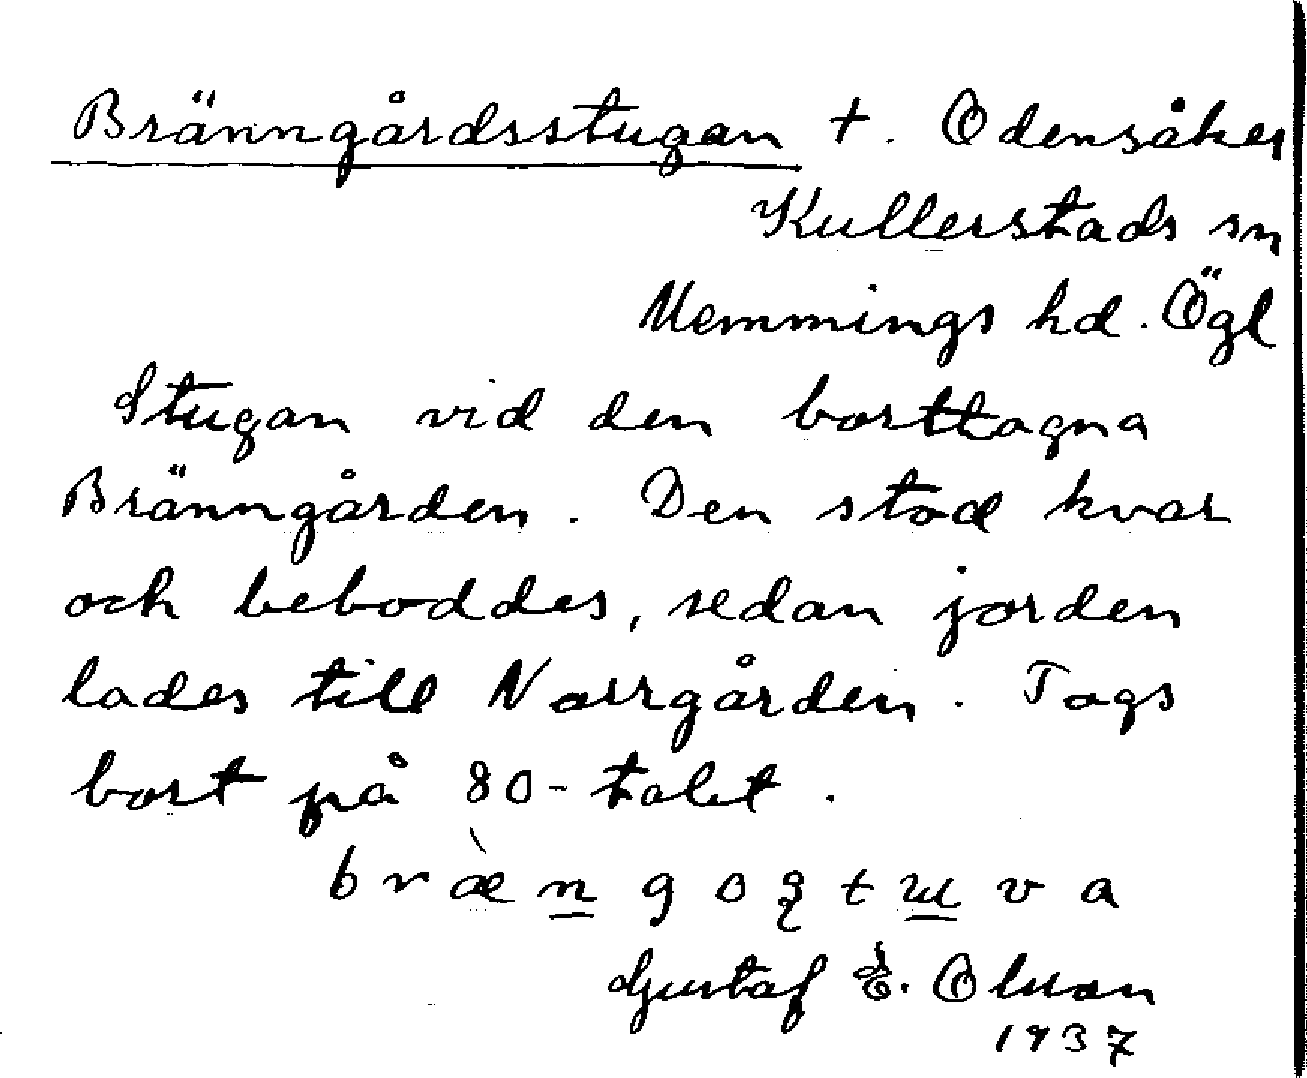 Bränngårdsstugan t. Odensåker
Kullerstads sn
Memmings hd. Ögl
Stugan vid den borttagna
Bränngården. Den stod kvar
och beboddes, sedan jorden
lades till Norrgården. Togs
bort på 80-talet.
Gustaf E. Olsson
1937